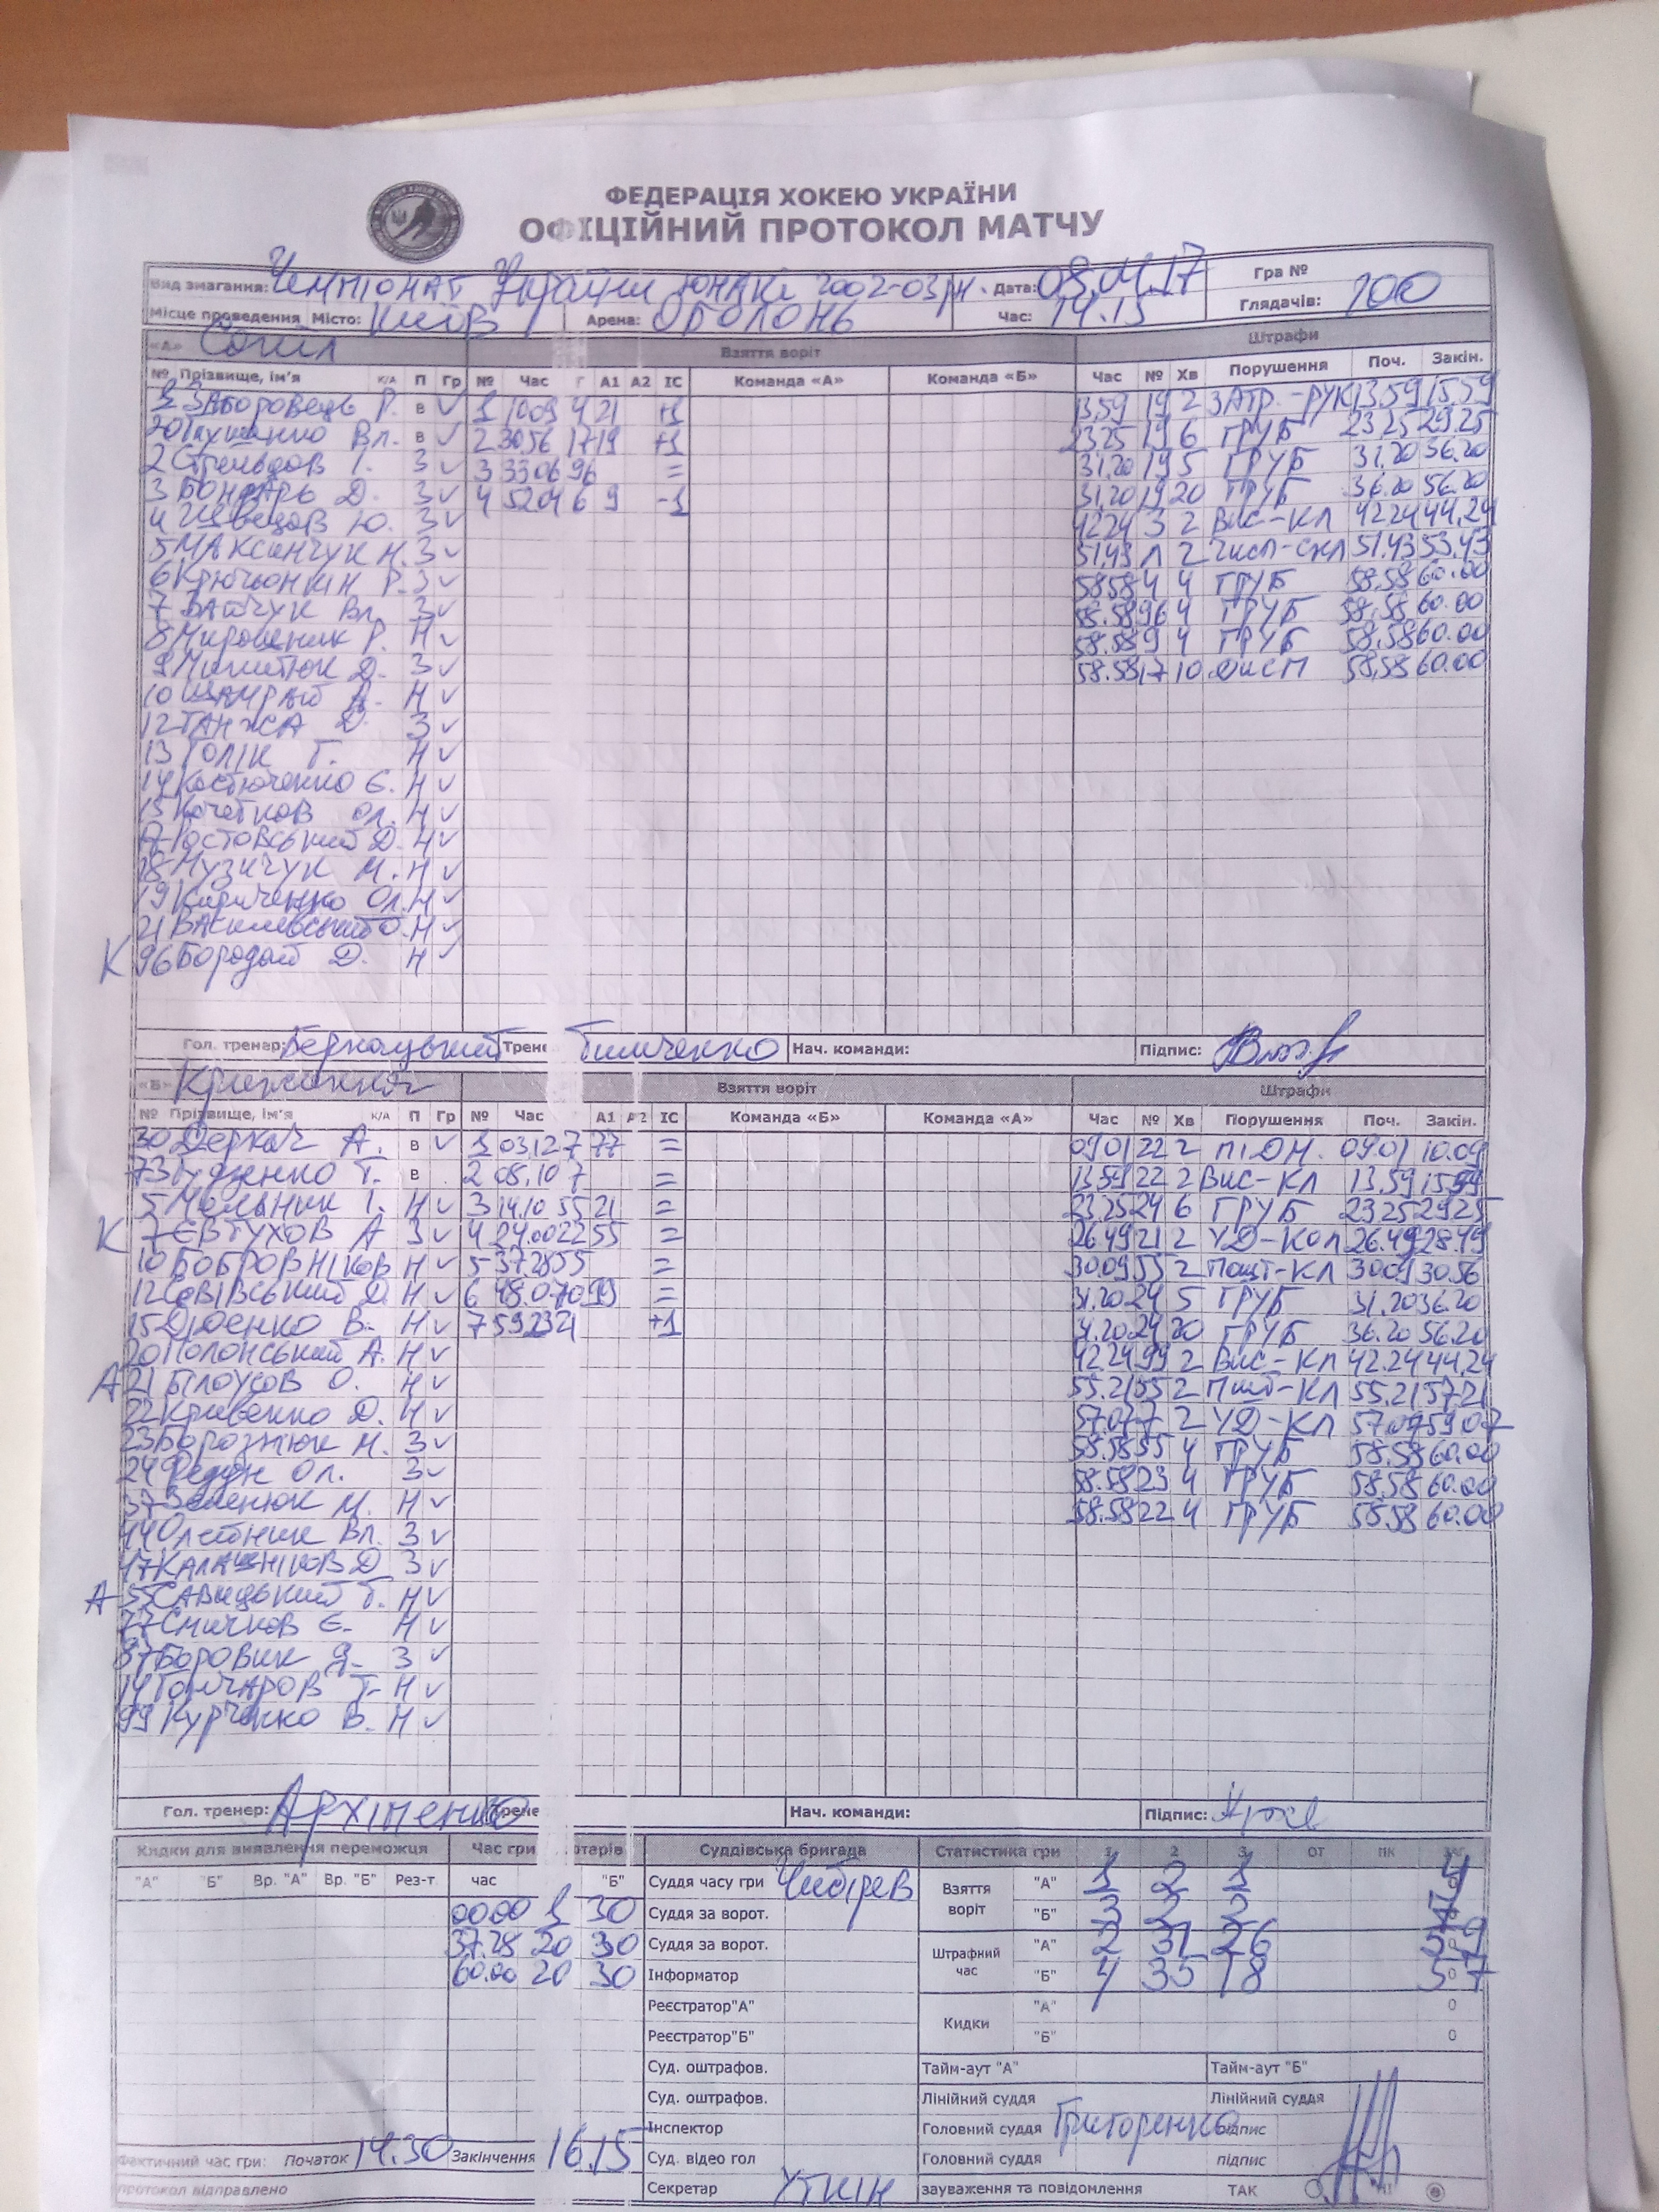 ФЕДЕРАЦІЯ ХОКЕЮ УКРАЇНИ
ОФІЦІЙНИЙ ПРОТОКОЛ МАТЧУ
Вид змагання: Чемпіонат України юнаки 2002-03рн. Дата: 08.04.17 Гра №
Місце проведення Місто: Київ Арена: Оболонь Час: 14.15 Глядачів: 100
«А» Сокіл Взяття воріт Штрафи
№ Прізвище, ім'я К/А П Гр № Час Г А1 А2 ІС Команда «А» Команда «Б» Час № Хв Порушення Поч. Закін.
1 Заборовець Р. в ✓ 1 10.09 4 21 +1 13.59 19 2 ЗАТР.-РУК 13.59 15.59
20 Глухенко Вл. в ✓ 2 30.56 17 19 +1 23.25 19 6 ГРУБ 23.25 29.25
2 І. З ✓ 3 33.06 96 = 31.20 19 5 ГРУБ 31.20 36.20
3 Бондарь Д. З ✓ 4 52.04 6 9 -1 31.20 19 20 ГРУБ 36.20 56.20
4 Швецов Ю. З ✓ 42.24 3 2 Вис-кл 42.24 44.24
5 Максимчук М. З ✓ 51.43 Л 2 Числ-скл 51.43 53.43
6 Крючьонкін Р. З ✓ 58.58 4 4 ГРУБ 58.58 60.00
7 Зайчук Вл. З ✓ 58.58 96 4 ГРУБ 58.58 60.00
8 Мирошник Р. Н ✓ 58.58 9 4 ГРУБ 58.58 60.00
9 Микитюк Д. З ✓ 58.58 17 10 Дисп 58.58 60.00
10 Шамрай А. Н ✓
12 Танжса Д. З ✓
13 Голік Г. Н ✓
14 Костюченко Є. Н ✓
15 Кочетков Ол. Н ✓
17 Ростовський Д. Н ✓
18 Музичук М. Н ✓
19 Кириченко Ол. Н ✓
21 Василевський О. Н ✓
К 96 Бородай Д. Н ✓
Гол. тренер: Бернацький Трене Тимченко Нач. команди: Підпис:
«Б» Крижинка Взяття воріт Штрафи
№ Прізвище, ім'я К/А П Гр № Час А1 А2 ІС Команда «Б» Команда «А» Час № Хв Порушення Поч. Закін.
30 Деркач А. в ✓ 1 03.12 7 77 = 09.01 22 2 ПІ.ДН. 09.01 10.09
73 Гуденко Т. в 2 08.10 7 = 13.59 22 2 Вис-кл 13.59 15.59
5 Мельник І. Н ✓ 3 14.10 55 21 = 23.25 24 6 ГРУБ 23.25 29.25
К 7 Євтухов А З ✓ 4 24.00 22 55 = 26.49 21 2 УД-Кол 26.49 28.49
10 Бобровніков Н ✓ 5 37.28 55 = 30.09 55 2 Пошт-Кл 30.09 30.56
12 Севівський Д. Н ✓ 6 48.07 10 99 = 31.20 24 5 ГРУБ 31.20 36.20
15 Дюенко В. Н ✓ 7 59.23 21 +1 31.20 24 20 ГРУБ 36.20 56.20
20 Полонський А. Н ✓ 42.24 99 2 Вис-Кл 42.24 44.24
А 21 Білоусов О. Н ✓ 55.21 55 2 Пшт-Кл 55.21 57.21
22 Кривенко Д. Н ✓ 57.07 7 2 УД-Кл 57.07 59.07
23 Борознюк М. З ✓ 58.58 55 4 ГРУБ 58.58 60.00
24 Редун Ол. З ✓ 58.58 23 4 ГРУБ 58.58 60.00
37 Зеленюк М. Н ✓ 58.58 22 4 ГРУБ 58.58 60.00
44 Олейник Вл. З ✓
47 Калашніков Д З ✓
А 55 Савицький Т. Н ✓
77 Смичков Є. Н ✓
87 Боровик Я. З ✓
14 Гончаров Т. Н ✓
99 Курченко В. Н ✓
Гол. тренер: Архіпенко Трене Нач. команди: Підпис:
Кидки для виявлення переможця Час гри отерів Суддівська бригада Статистика гри 1 2 3 ОТ ПК
"А" "Б" Вр. "А" Вр. "Б" Рез-т час "Б" Суддя часу гри Чибірев Взяття воріт "А" 1 2 1 4
00.00 1 30 Суддя за ворот. "Б" 3 2 2 7
37.28 20 30 Суддя за ворот. Штрафний час "А" 2 31 26 59
60.00 20 30 Інформатор "Б" 4 35 18 57
Реєстратор"А" Кидки "А" 0
Реєстратор"Б" "Б" 0
Суд. оштрафов. Тайм-аут "А" Тайм-аут "Б"
Суд. оштрафов. Лінійний суддя Лінійний суддя
Інспектор Головний суддя Григоренко підпис
Фактичний час гри: Початок 14.30 Закінчення 16.15 Суд. відео гол Головний суддя підпис
протокол відправлено Секретар Уткін зауваження та повідомлення ТАК НІ